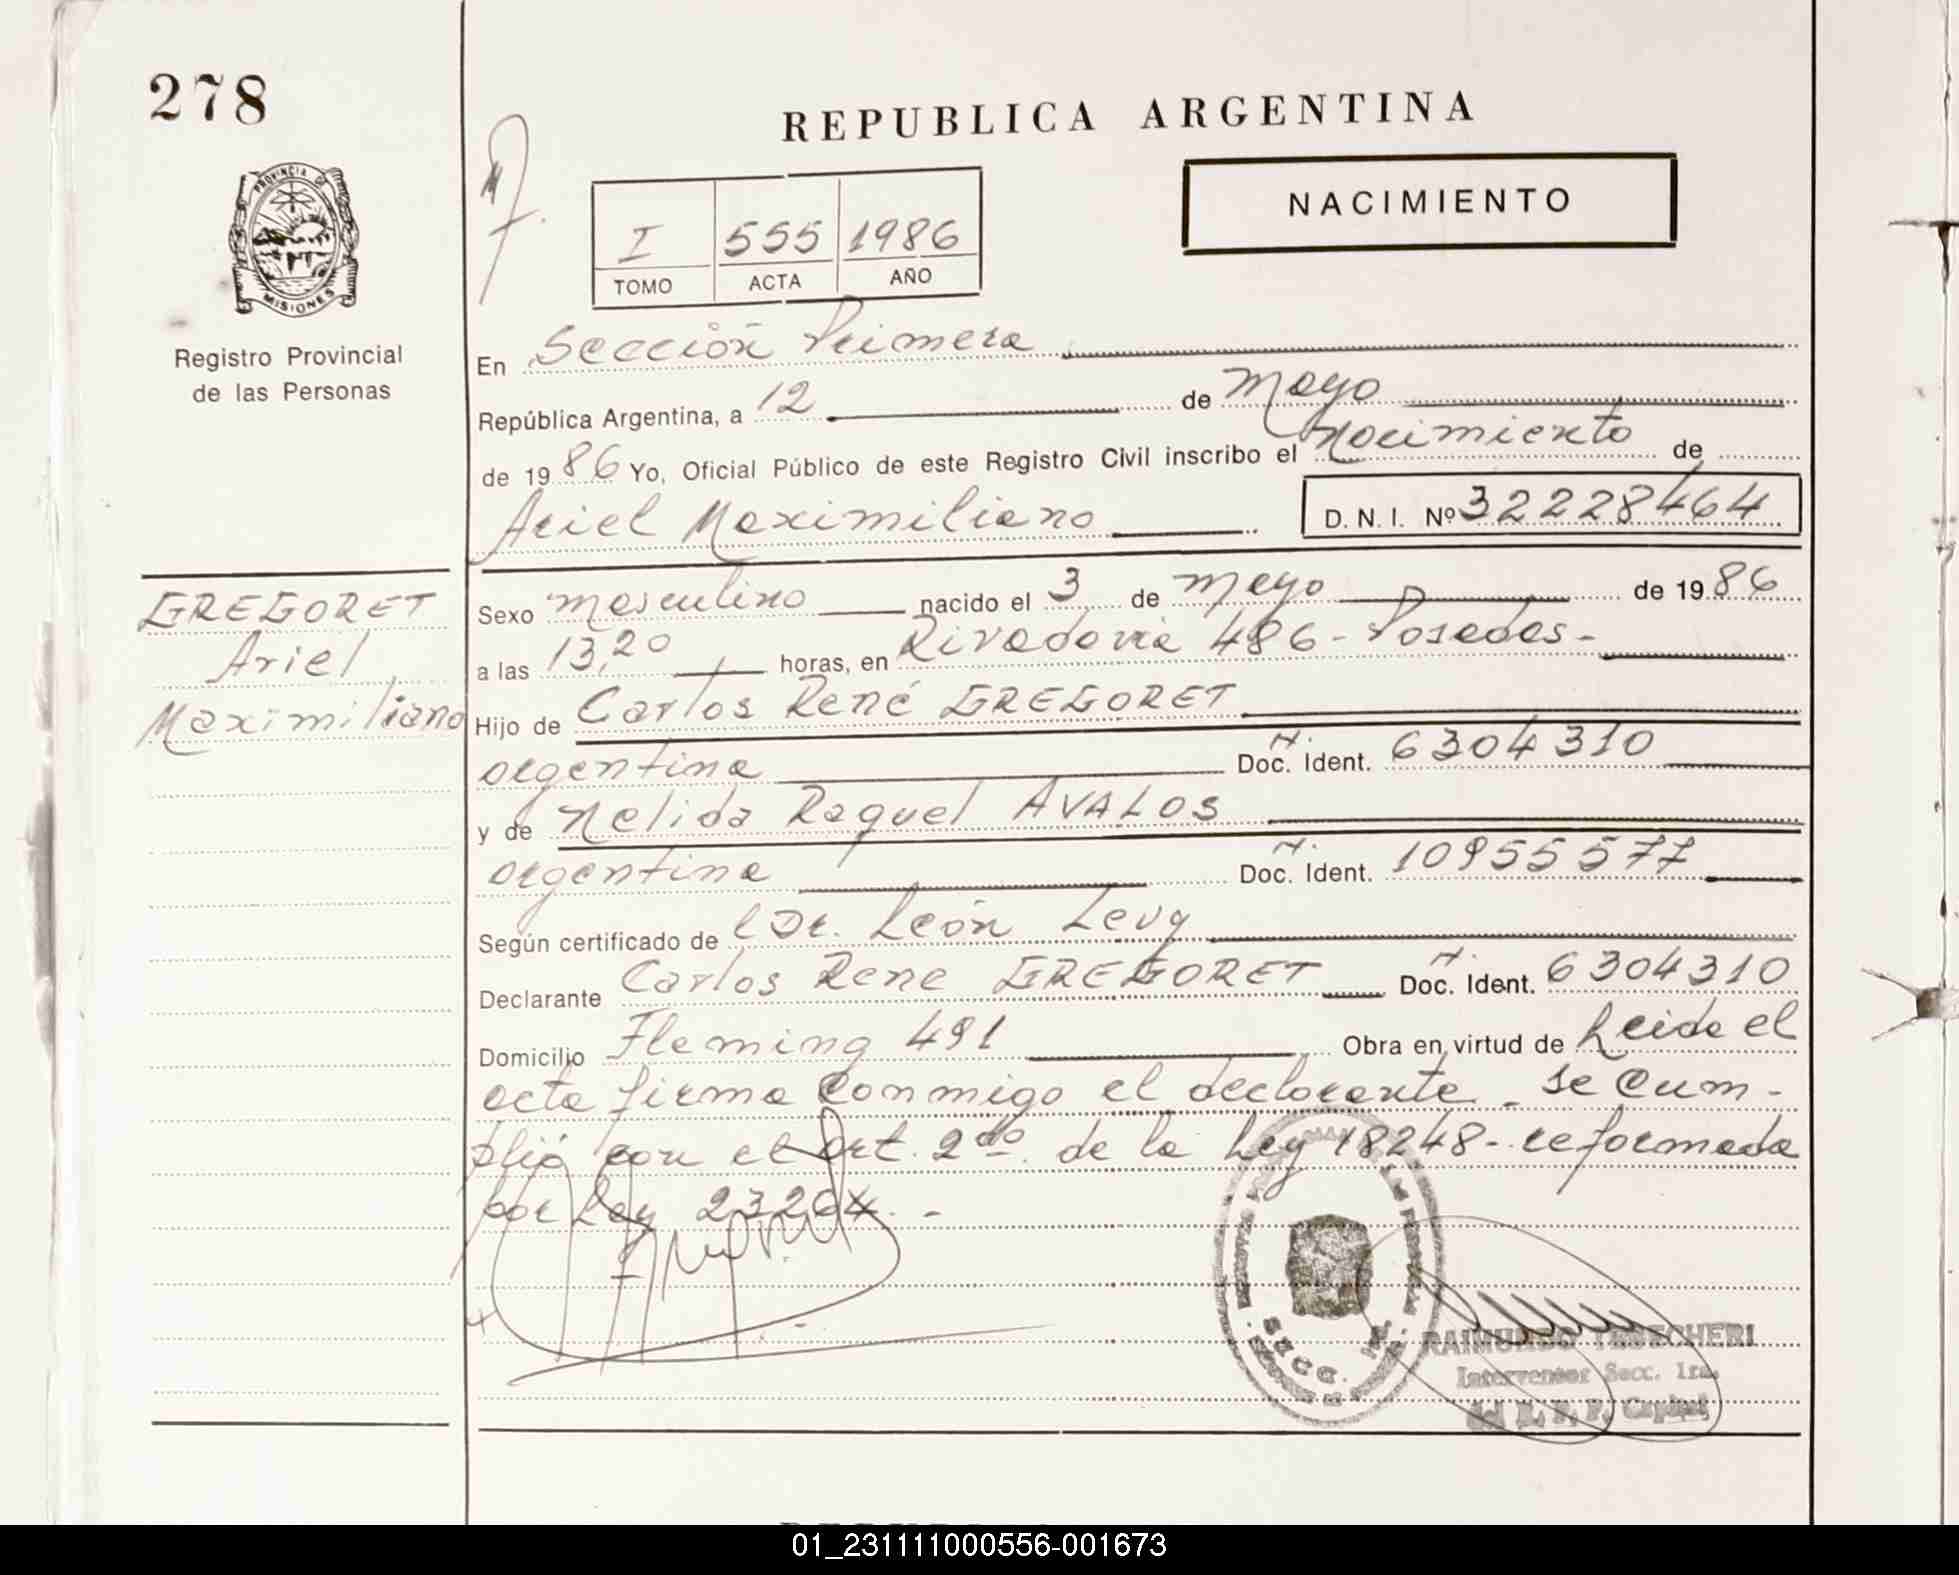 278
REPUBLICA ARGENTINA
NACIMIENTO
I 555 1986
TOMO ACTA AÑO
PROVINCIA DE
MISIONES
Registro Provincial
de las Personas
En Sección Primera
República Argentina, a 12 de Mayo
de 1986 Yo, Oficial Público de este Registro Civil inscribo el Nacimiento de
Ariel Maximiliano D. N. I. Nº 32228464
GREGORET
Ariel
Maximiliano
Sexo masculino nacido el 3 de Mayo de 1986
a las 13,20 horas, en Rivadavia 486 - Posadas -
Hijo de Carlos René GREGORET
argentina Doc. Ident. M. 6304310
y de Nelida Raquel AVALOS
argentina Doc. Ident. M. 10955577
Según certificado de Dr. León Levy
Declarante Carlos Rene GREGORET Doc. Ident. M. 6304310
Domicilio Fleming 491 Obra en virtud de Leida el
acta firma conmigo el declarante - se cum-
plió con el art. 2do. de la Ley 18248 - reformada
por Ley 23264. -
SECC.
RAIMUNDO
Interventor Secc. 1ra.
del R. P. P. Capital
01_231111000556-001673